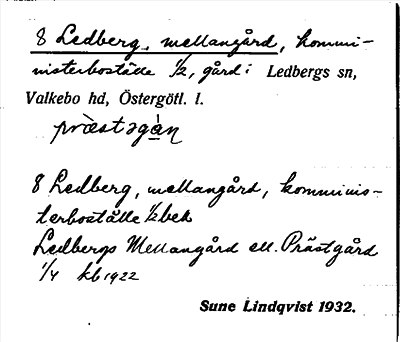 8 Ledberg, mellangård, kommi-
nisterboställe 1/2, gård i Ledbergs sn,
Valkebo hd, Östergötl. l.
præstəgàn
8 Ledberg, mellangård, komminis-
terboställe 1/2 bek
Ledbergs Mellangård ell. Prästgård
1/4 kb 1922
Sune Lindqvist 1932.